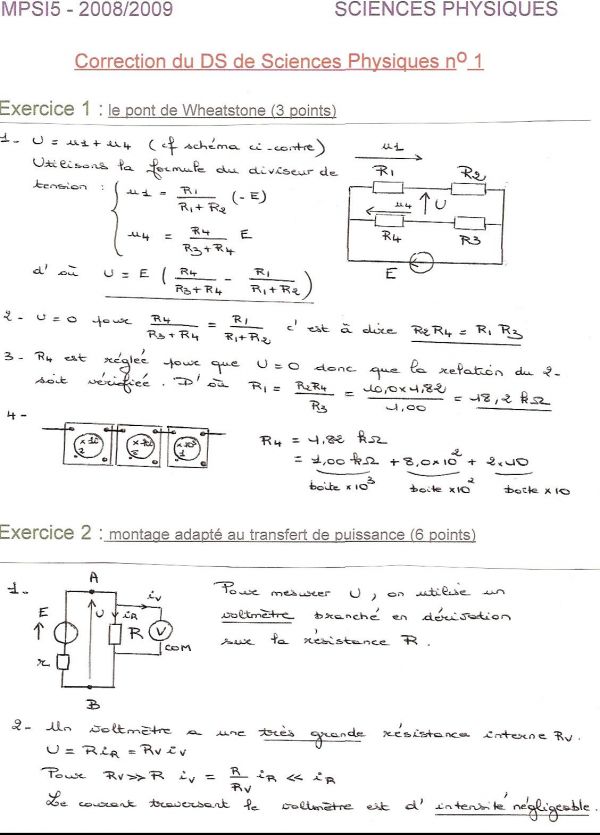 MPSI5 - 2008/2009 SCIENCES PHYSIQUES
Correction du DS de Sciences Physiques nº 1
Exercice 1 : le pont de Wheatstone (3 points)
1- U = u1 + u4 (cf schéma ci-contre)
Utilisons la formule du diviseur de
tension : { u1 = R1/(R1+R2) (-E)
u4 = R4/(R3+R4) E
d'où U = E (R4/(R3+R4) - R1/(R1+R2))
u1
R1 R2
u4 U
R4 R3
E
2- U=0 pour R4/(R3+R4) = R1/(R1+R2) c'est à dire R2R4 = R1R3
3- R4 est réglée pour que U=0 donc que la relation du 2-
soit vérifiée. D'où R1 = R2R4/R3 = 10,0x1,82/1,00 = 18,2 kΩ
4-
R4 = 1,82 kΩ
= 1,00kΩ + 8,0x10² + 2x10
boîte x10³ boîte x10² boîte x10
Exercice 2 : montage adapté au transfert de puissance (6 points)
1-
A
E U iR iv
R V
r COM
B
Pour mesurer U, on utilise un
voltmètre branché en dérivation
sur la résistance R.
2- Un voltmètre a une très grande résistance interne Rv.
U = R iR = Rv iv
Pour Rv>>R iv = R/Rv iR << iR
Le courant traversant le voltmètre est d'intensité négligeable.